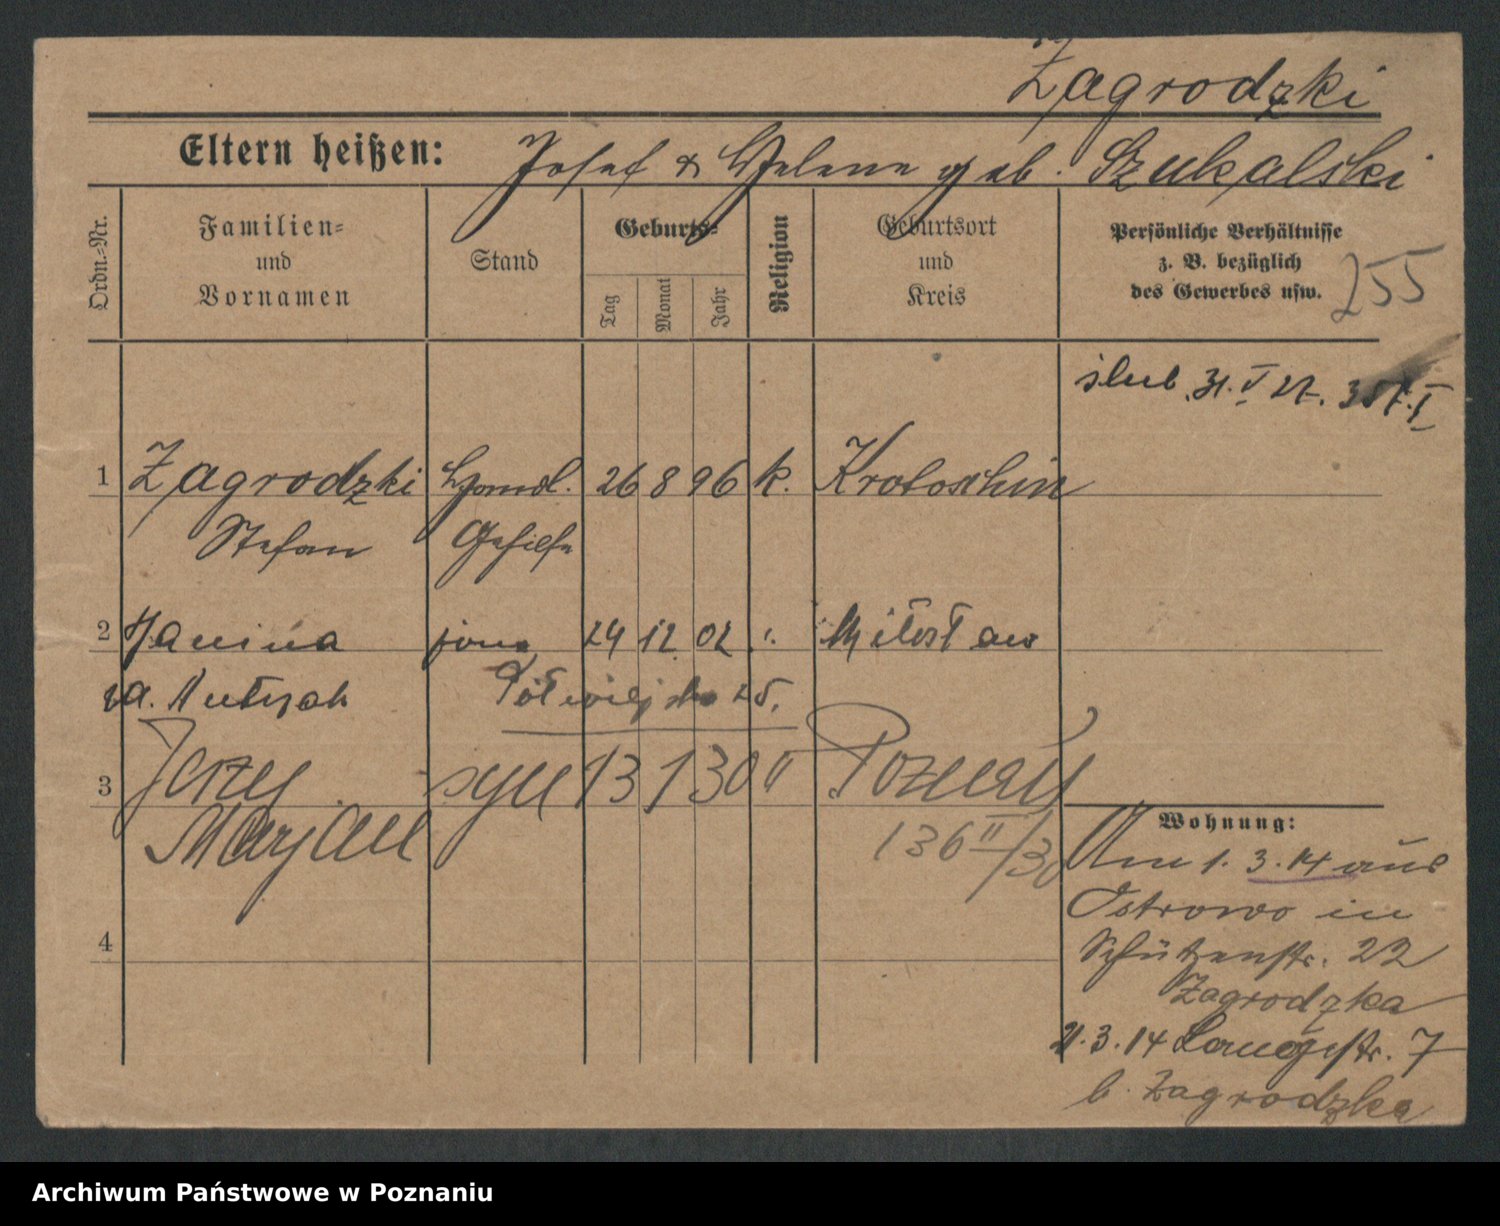 Zagrodzki
Eltern heißen: Josef & Helene geb. Szukalski
Ordn.=Nr.
Familien=
und
Vornamen
Stand
Geburts=
Tag
Monat
Jahr
Religion
Geburtsort
und
Kreis
Persönliche Verhältnisse
z. B. bezüglich
des Gewerbes usw.
255
ślub 31. V 27.
1 Zagrodzki Handl. 26 8 96 k. Krotoschin
Stefan Gehilfe
2 Janina żona 24 12 02
Półwiejska 25.
3 Jerzy syn 13 1 30 " Poznań
Marjan 136 II/30
4
Wohnung:
Am 1. 3. 14 aus
Ostrowo in
Schützenstr. 22
Zagrodzka
21. 3. 14 Langestr. 7
b. Zagrodzka
Archiwum Państwowe w Poznaniu